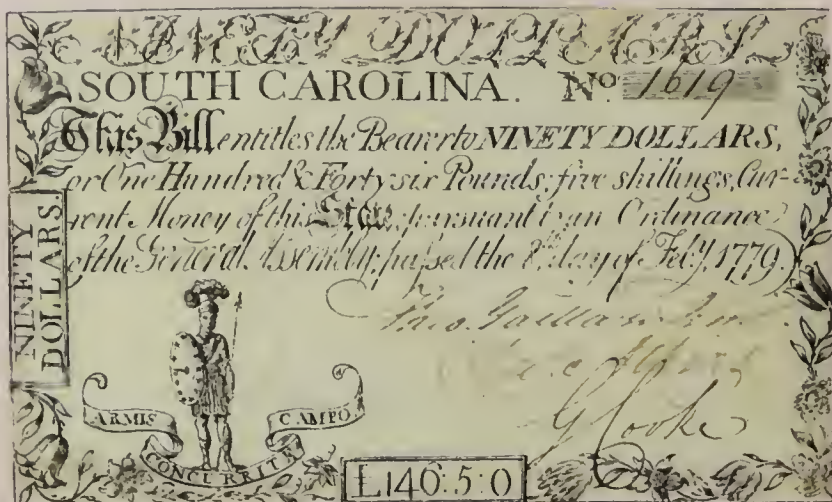 NINETY DOLLARS
SOUTH CAROLINA. No. 1619
This Bill entitles the Bearer to NINETY DOLLARS,
or One Hundred & Forty six Pounds, five shillings, Cur-
rent Money of this State, pursuant to an Ordinance
of the General Assembly, passed the 8th. day of Feby. 1779.
NINETY
DOLLARS.
Theo. Gaillard Junr.
G Cooke
ARMIS CAMPO
CONCURRITE
£146:5:0